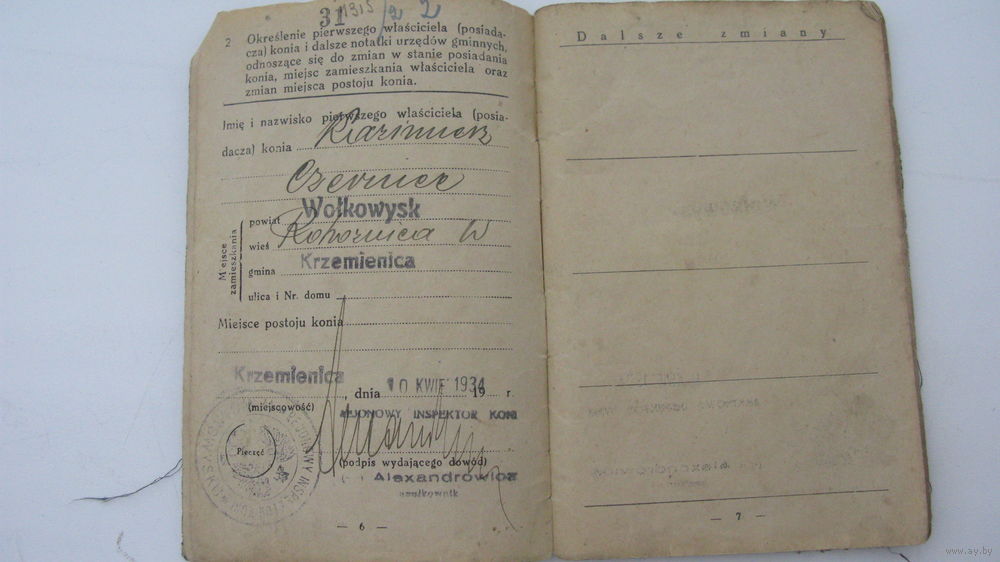 31 1315/22
2 Określenie pierwszego właściciela (posiada-
cza) konia i dalsze notatki urzędów gminnych,
odnoszące się do zmian w stanie posiadania
konia, miejsc zamieszkania właściciela oraz
zmian miejsca postoju konia.
Imię i nazwisko pierwszego właściciela (posia-
dacza) konia Kazimierz
Czerniec
Miejsce zamieszkania
powiat Wołkowysk
wieś W
gmina Krzemienica
ulica i Nr. domu
Miejsce postoju konia
Krzemienica, dnia 10 KWIE 1934 19 r.
(miejscowość)
REJONOWY INSPEKTOR KONI
Pieczęć
(podpis wydającego dowód)
Alexandrowicz
— 6 —
Dalsze zmiany
— 7 —
www.ay.by